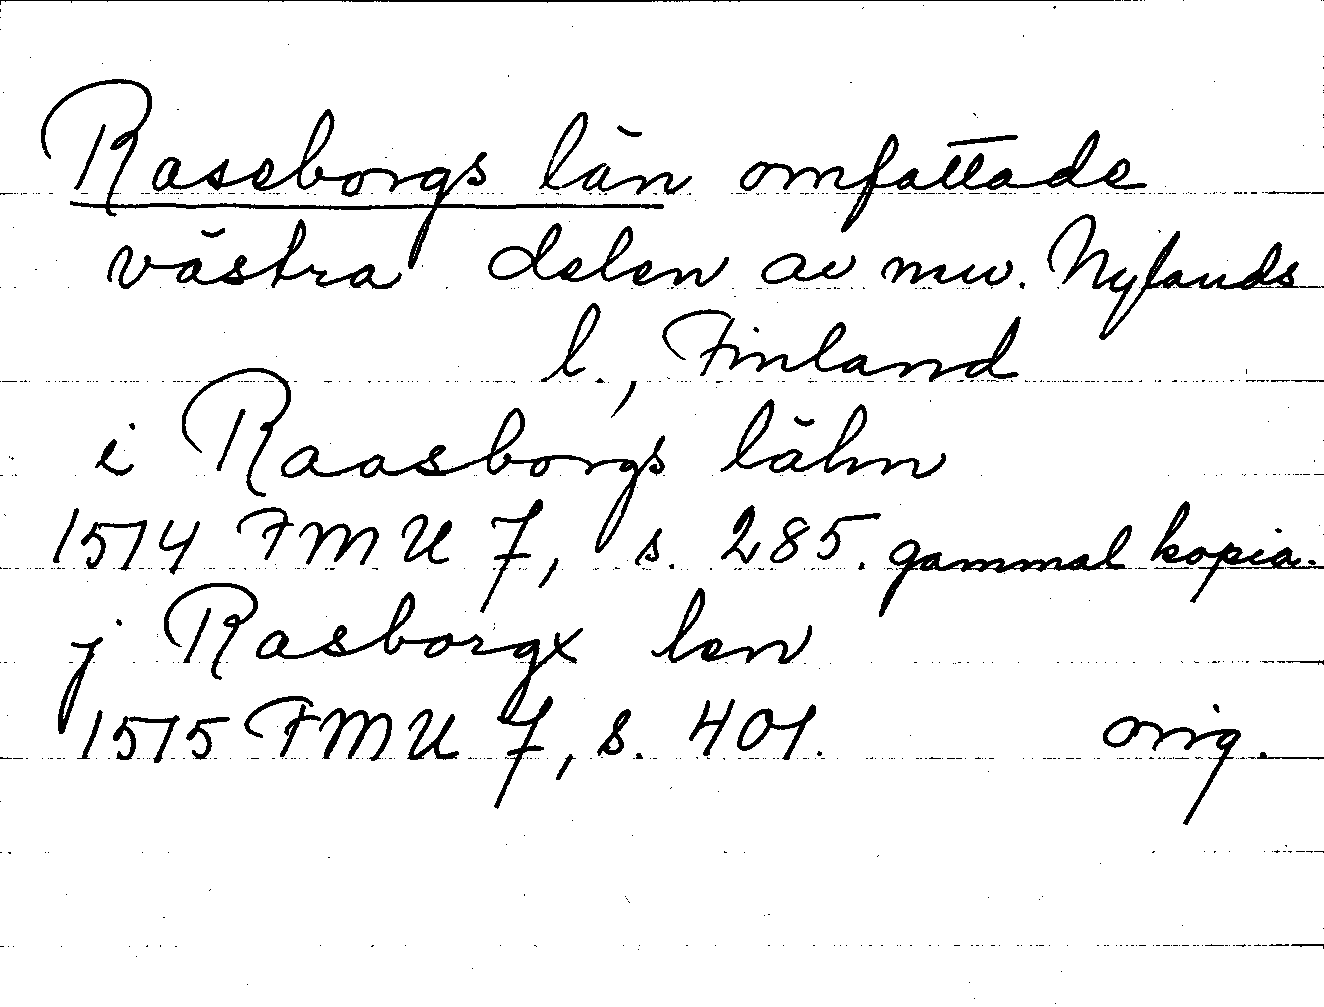 Raseborgs län omfattade
västra delen av nuv. Nylands
l., Finland
i Raasborgs lähn
1514 FMU 7, s. 285. gammal kopia.
j Rasborgx len
1515 FMU 7, s. 401. orig.